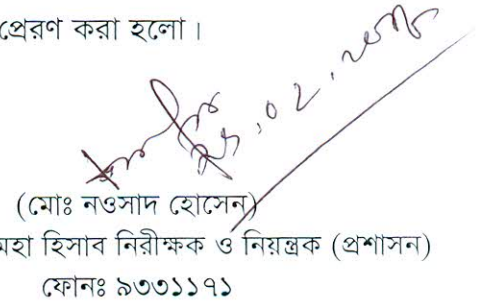 প্রেরণ করা হলো।
(মোঃ নওসাদ হোসেন)
মহা হিসাব নিরীক্ষক ও নিয়ন্ত্রক (প্রশাসন)
ফোনঃ ৯৩৩১১৭১